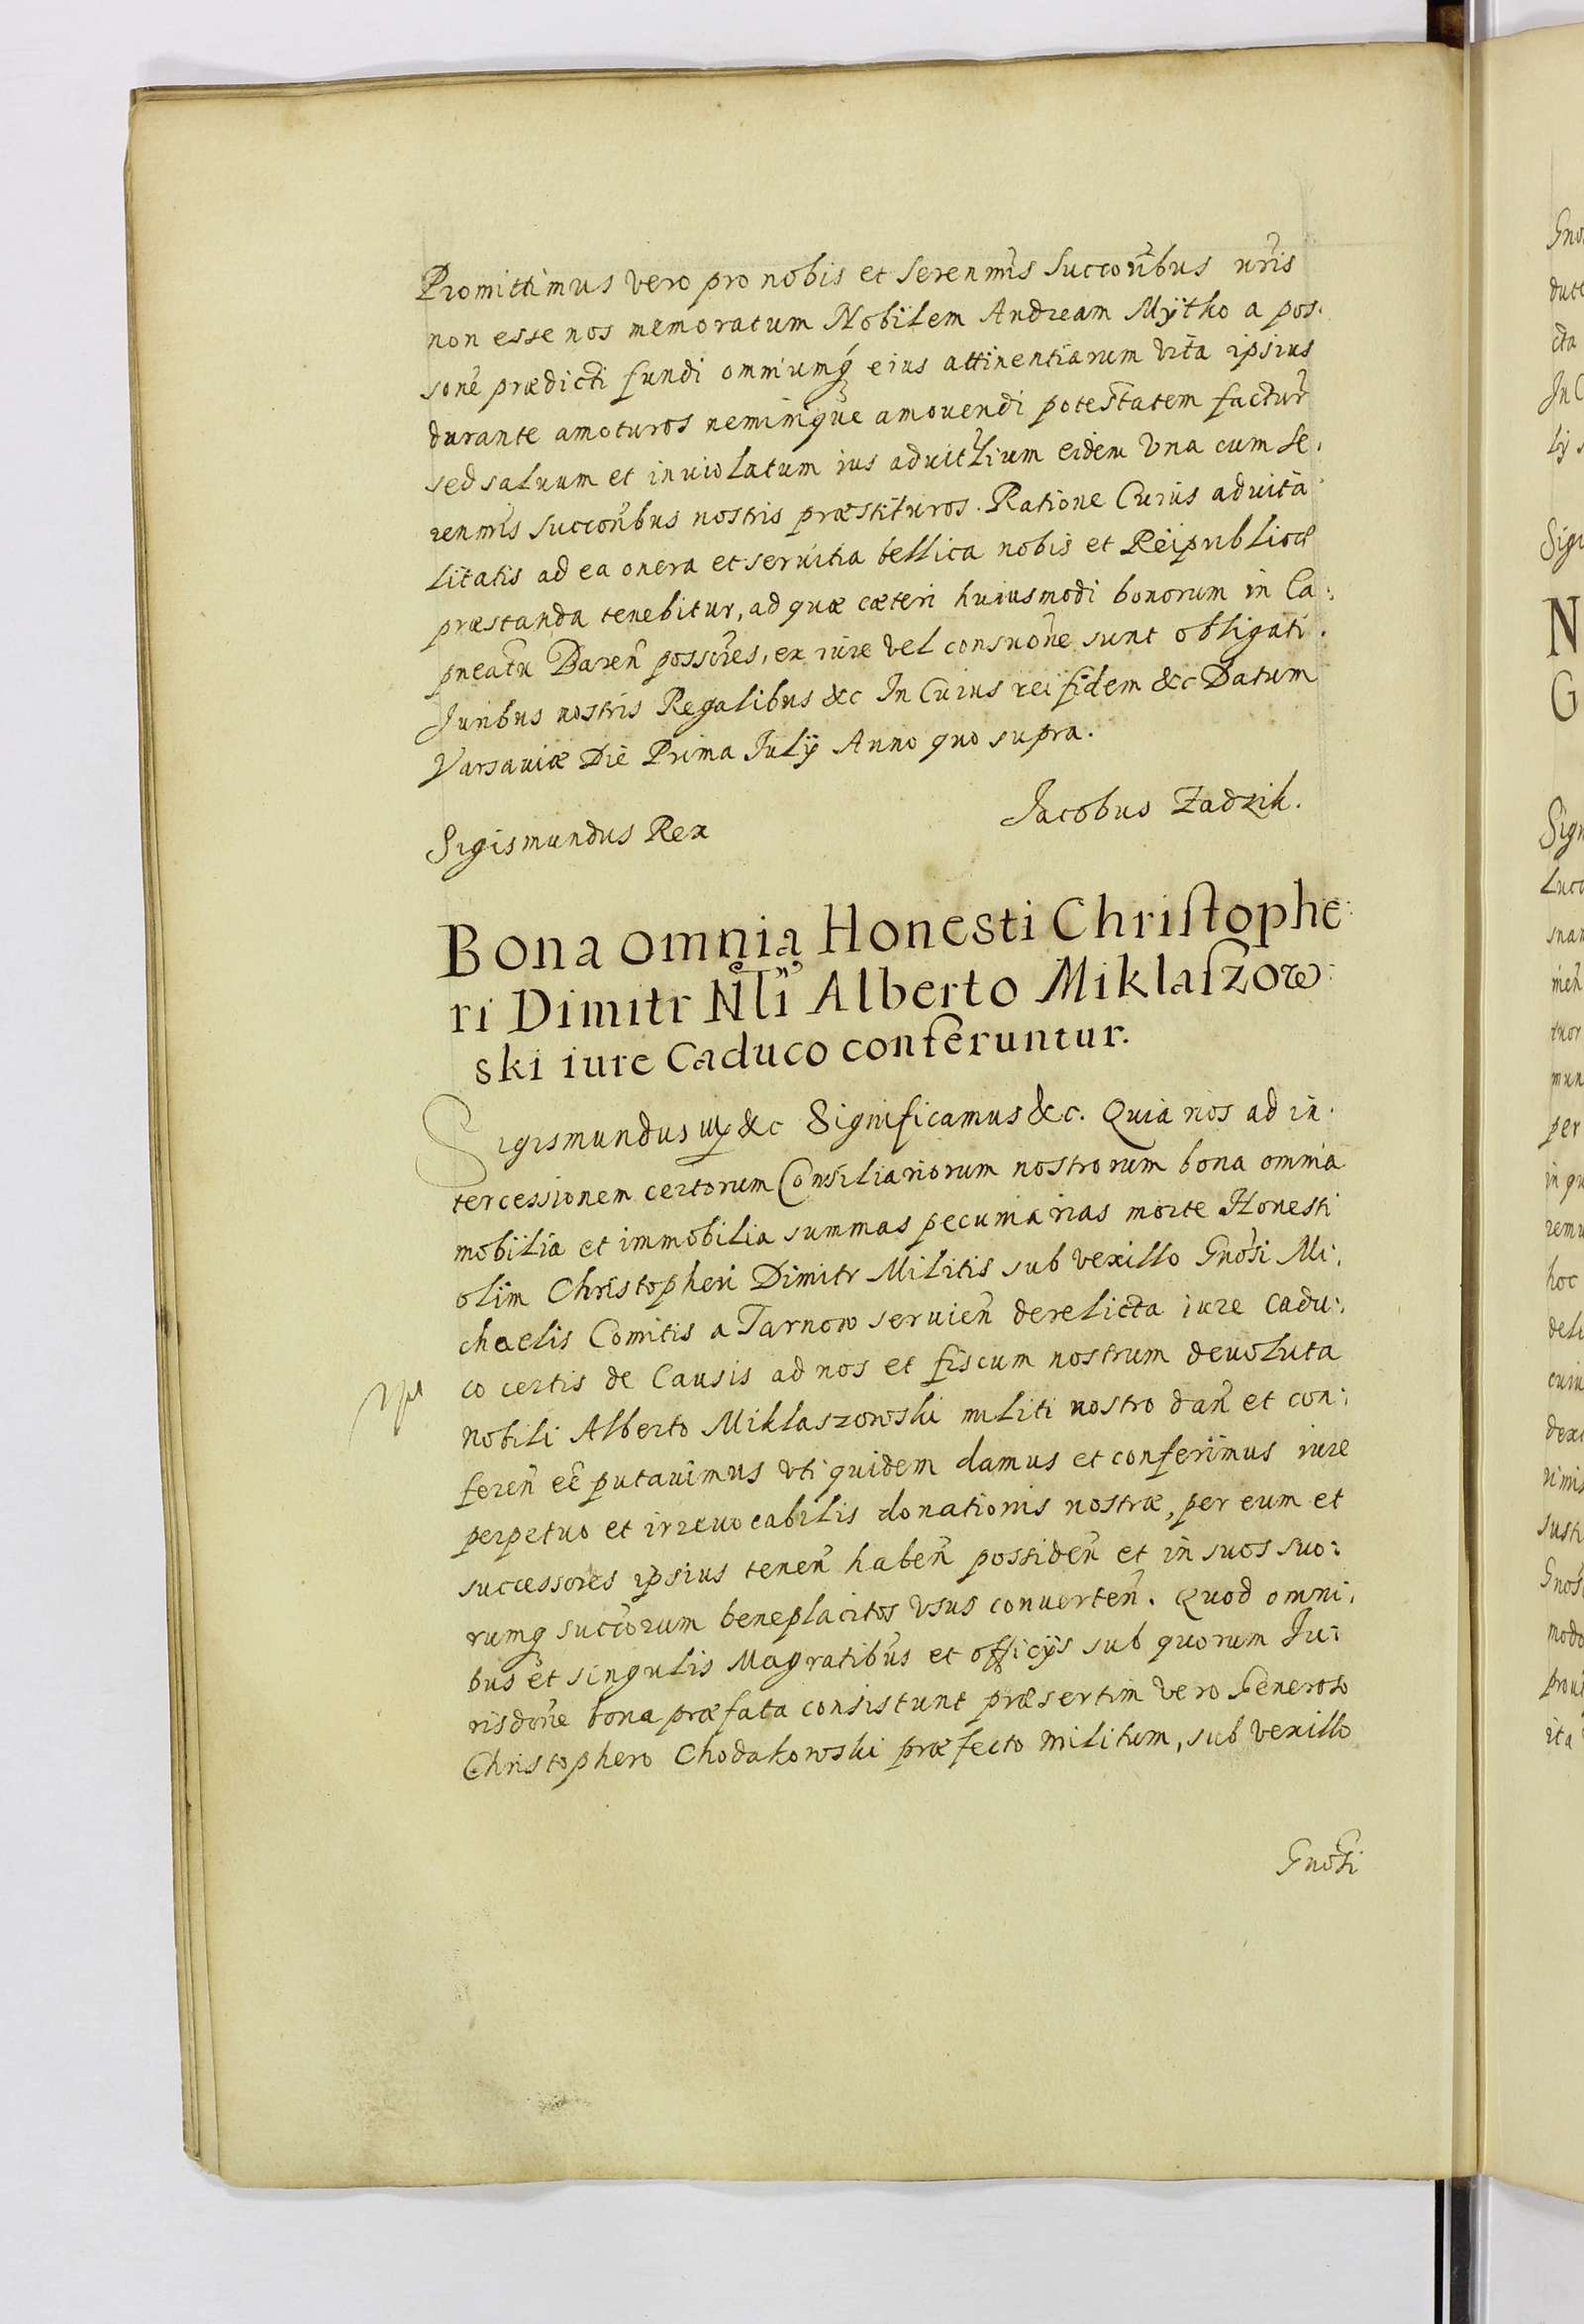 Promittimus vero pro nobis et Serenm̃is Succorĩbus nr̃is
non esse nos memoratum Nobilem Andream Mÿtko a pos.
sonẽ prædicti fundi omniumq́ eius attinentiarum vita ipsius
durante amoturos neminiqúe amouendi potestatem facturͦ
sed saluum et inuiolatum ius aduitl̃ium eidem Vna cum Se.
renm̃is Succorĩbus nostris præstituros. Ratione Cuius aduita
litatis ad ea onera et seruitia bellica nobis et Reipublicæ
præstanda tenebitur, ad quæ cæteri huiusmodi bonorum in Ca:
pneatũ Baren̄ possor̃es, ex iure vel consuon̄e sunt obligati.
Juribus nostris Regalibus &c In Cuius rei fidem &c Datum
Varsauiæ Die Prima Julÿ Anno quo supra.
Sigismundus Rex
Jacobus Zadzik.
Bona omnia Honesti Christophe:
ri Dimitr Nl̃i Alberto Miklaszow:
ski iure Caduco conferuntur.
Sigismundus III &c Significamus &c. Quia nos ad in.
tercessionem certorum Consiliariorum nostrorum bona omnia
mobilia et immobilia summas pecuniarias morte Honesti
olim Christopheri Dimitr Militis sub vexillo Gnõsi Mi:
chaelis Comitis a Tarnow seruien̄ derelicta iure cadu:
co certis de Causis ad nos et fiscum nostrum deuoluta
nobili Alberto Miklaszowski militi nostro dan̄ et con:
feren̄ eẽ putauimus vti quidem damus et conferimus iure
perpetuo et irreuocabilis donationis nostræ, per eum et
successores ipsius tenen̄ haben̄ possiden̄ et in suos suo:
rumq́ succorum beneplacitos vsus conuerten̄. Quod omni.
bus et singulis Magratibus et officijs sub quorum Ju:
risdon̄e bona præfata consistunt præsertim vero Generoso
Christophero Chodakowski præfecto militum, sub vexillo
Gnõsi